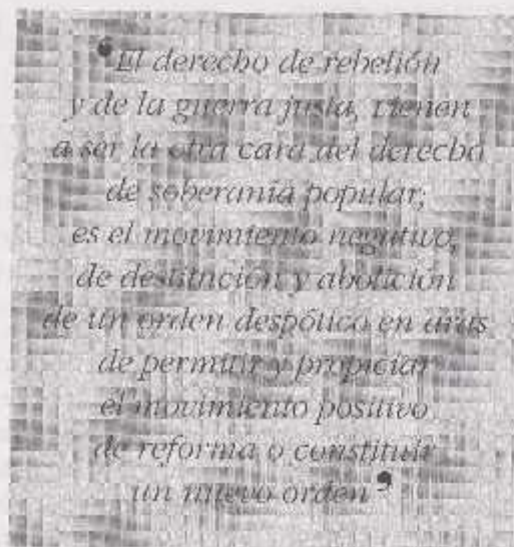 “El derecho de rebelión
y de la guerra justa, vienen
a ser la otra cara del derecho
de soberanía popular;
es el movimiento negativo,
de destitución y abolición
de un orden despótico en aras
de permitir y propiciar
el movimiento positivo
de reforma o constituir
un nuevo orden”